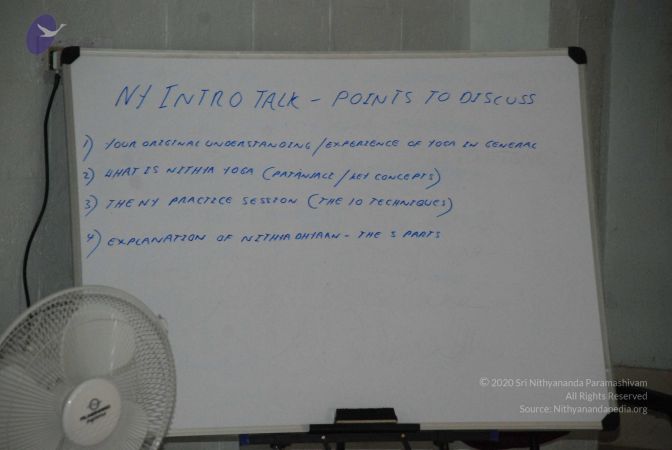 NY INTRO TALK - POINTS TO DISCUSS
1) YOUR ORIGINAL UNDERSTANDING/EXPERIENCE OF YOGA IN GENERAL
2) WHAT IS NITHYA YOGA (PATANJALI/KEY CONCEPTS)
3) THE NY PRACTICE SESSION (THE 10 TECHNIQUES)
4) EXPLANATION OF NITHYA DHYAAN - THE 5 PARTS
© 2020 Sri Nithyananda Paramashivam
All Rights Reserved
Source: Nithyanandapedia.org